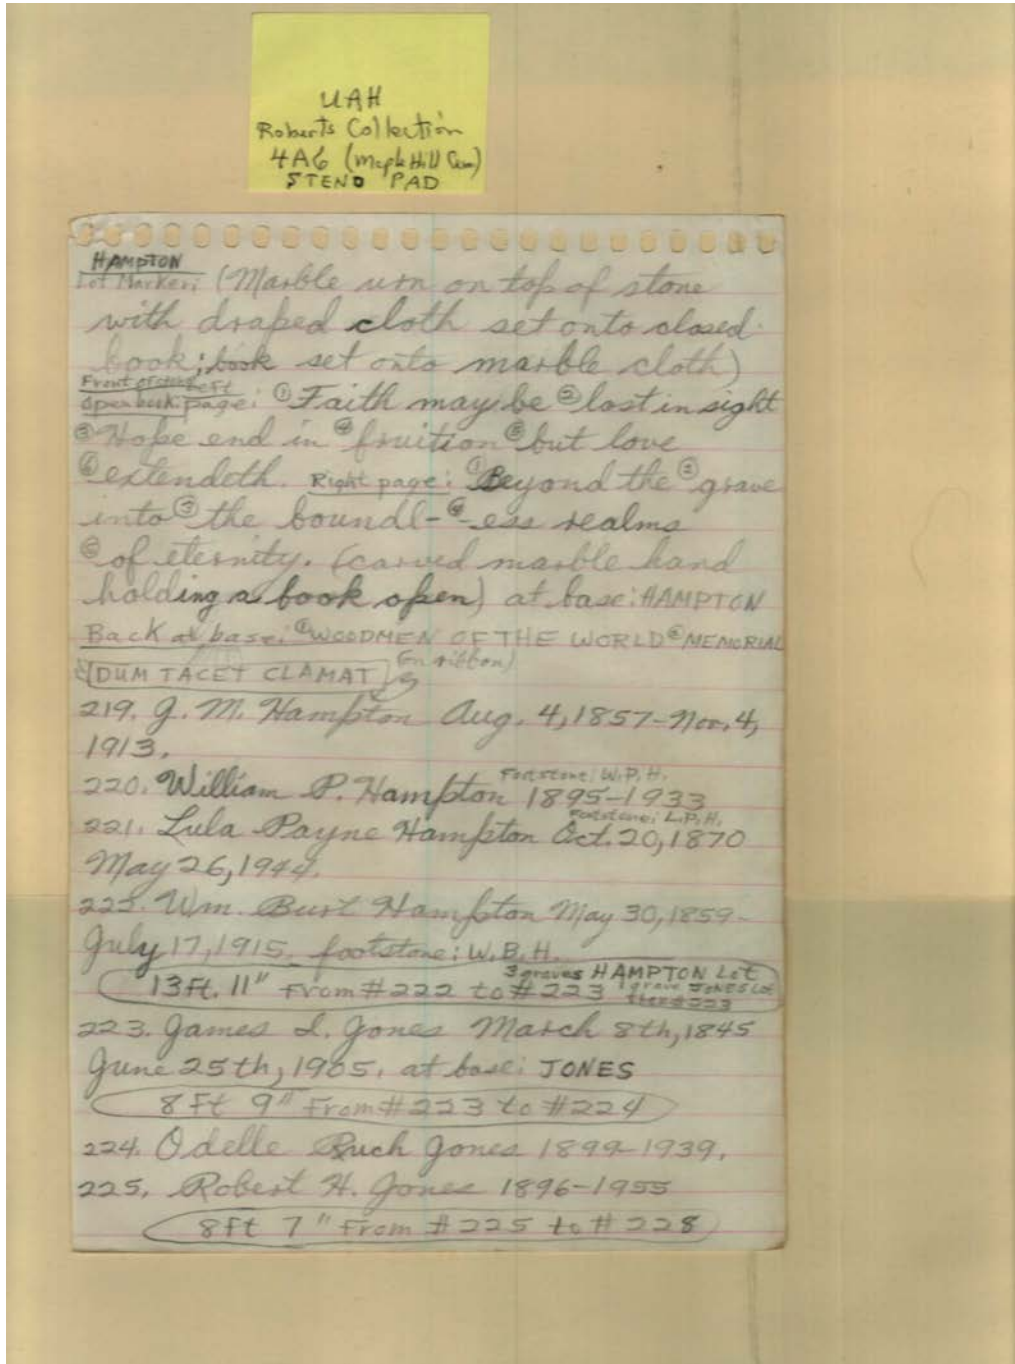 UAH
Roberts Collection
4A6 (Maple Hill Cem)
STENO PAD
HAMPTON
Lot Marker: (Marble urn on top of stone
with draped cloth set onto closed
book; book set onto marble cloth)
Front of stone Left
open book page: ① Faith may be ② lost in sight
③ Hope end in ④ fruition ⑤ but love
⑥ extendeth. Right page: ① Beyond the ② grave
into ③ the boundl- ④ -ess realms
⑤ of eternity. (carved marble hand
holding a book open) at base: HAMPTON
Back at base: ① WOODMEN OF THE WORLD ② MEMORIAL
DUM TACET CLAMAT (on ribbon)
219. J. M. Hampton Aug. 4, 1857-Nov. 4,
1913.
220. William P. Hampton 1895-1933 Footstone: W.P.H.
221. Lula Payne Hampton Oct. 20, 1870 footstone: L.P.H.
May 26, 1944.
222. Wm. Burt Hampton May 30, 1859-
July 17, 1915. footstone: W.B.H.
3 graves HAMPTON Lot
13 Ft. 11" From #222 to #223 1 grave JONES Lot
223. James L. Jones March 8th, 1845
June 25th, 1905. at base: JONES
8 Ft 9" From #223 to #224
224. Odelle Ruch Jones 1899-1939.
225. Robert H. Jones 1896-1955
8 Ft 7" From #225 to #228